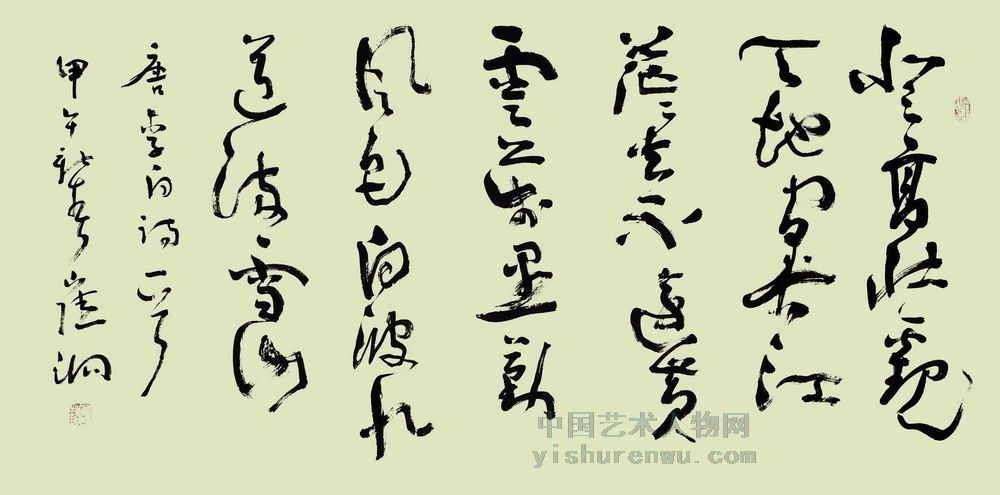 登高壯觀
天地間大江
茫茫去不還黄
雲萬里動
風色白波九
道流雪山
唐李白詩一首
甲午新春崔
中国艺术人物网
yishurenwu.com